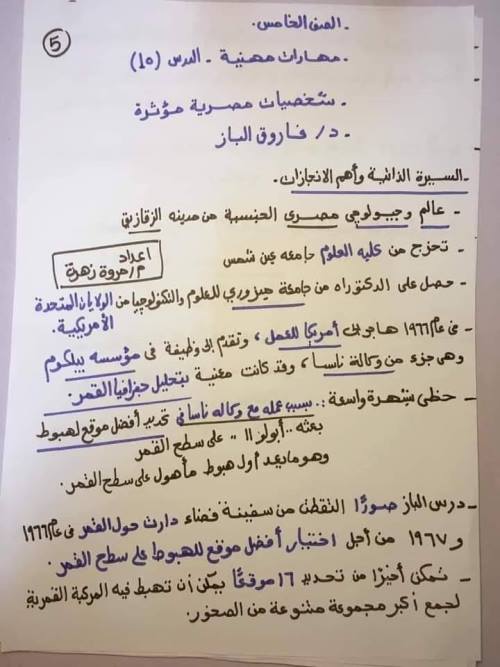 5
- الصف الخامس.
- مهارات مهنية - الدرس (10)
- شخصيات مصرية مؤثرة
- د/ فاروق الباز
- السيرة الذاتية وأهم الانجازات.
- عالم وجيولوجي مصري الجنسية من مدينه الزقازيق
- تخرج من كليه العلوم جامعه عين شمس
اعداد
م/مروة زهرة
- حصل على الدكتوراه من جامعة ميزوري للعلوم والتكنولوجيا من الولايات المتحدة
الأمريكية.
- فى عام ١٩٦٦ هاجر الى أمريكا للعمل، وتقدم إلى وظيفة فى مؤسسه بيلكوم
وهى جزء من وكالة ناسا، وقد كانت معنية بتحليل جغرافيا القمر.
- حظى بشهرة واسعة: بسبب عمله مع وكاله ناسا فى تحديد أفضل موقع لهبوط
بعثه "أبولو ١١" على سطح القمر
وهو ما يعد أول هبوط مأهول على سطح القمر.
- درس الباز صورًا التقطت من سفينة فضاء دارت حول القمر فى عام ١٩٦٦
و ١٩٦٧ من أجل اختيار أفضل موقع للهبوط على سطح القمر.
- تمكن أخيرًا من تحديد ١٦ موقعًا يمكن أن تهبط فيه المركبة القمرية
لجمع أكبر مجموعة متنوعة من الصخور.